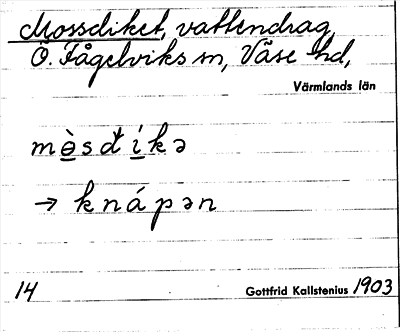 Mossdiket, vattendrag,
Ö. Fågelviks sn, Väse hd,
Värmlands län
mò̲sdí̲kə
→ knápən
14 Gottfrid Kallstenius 1903